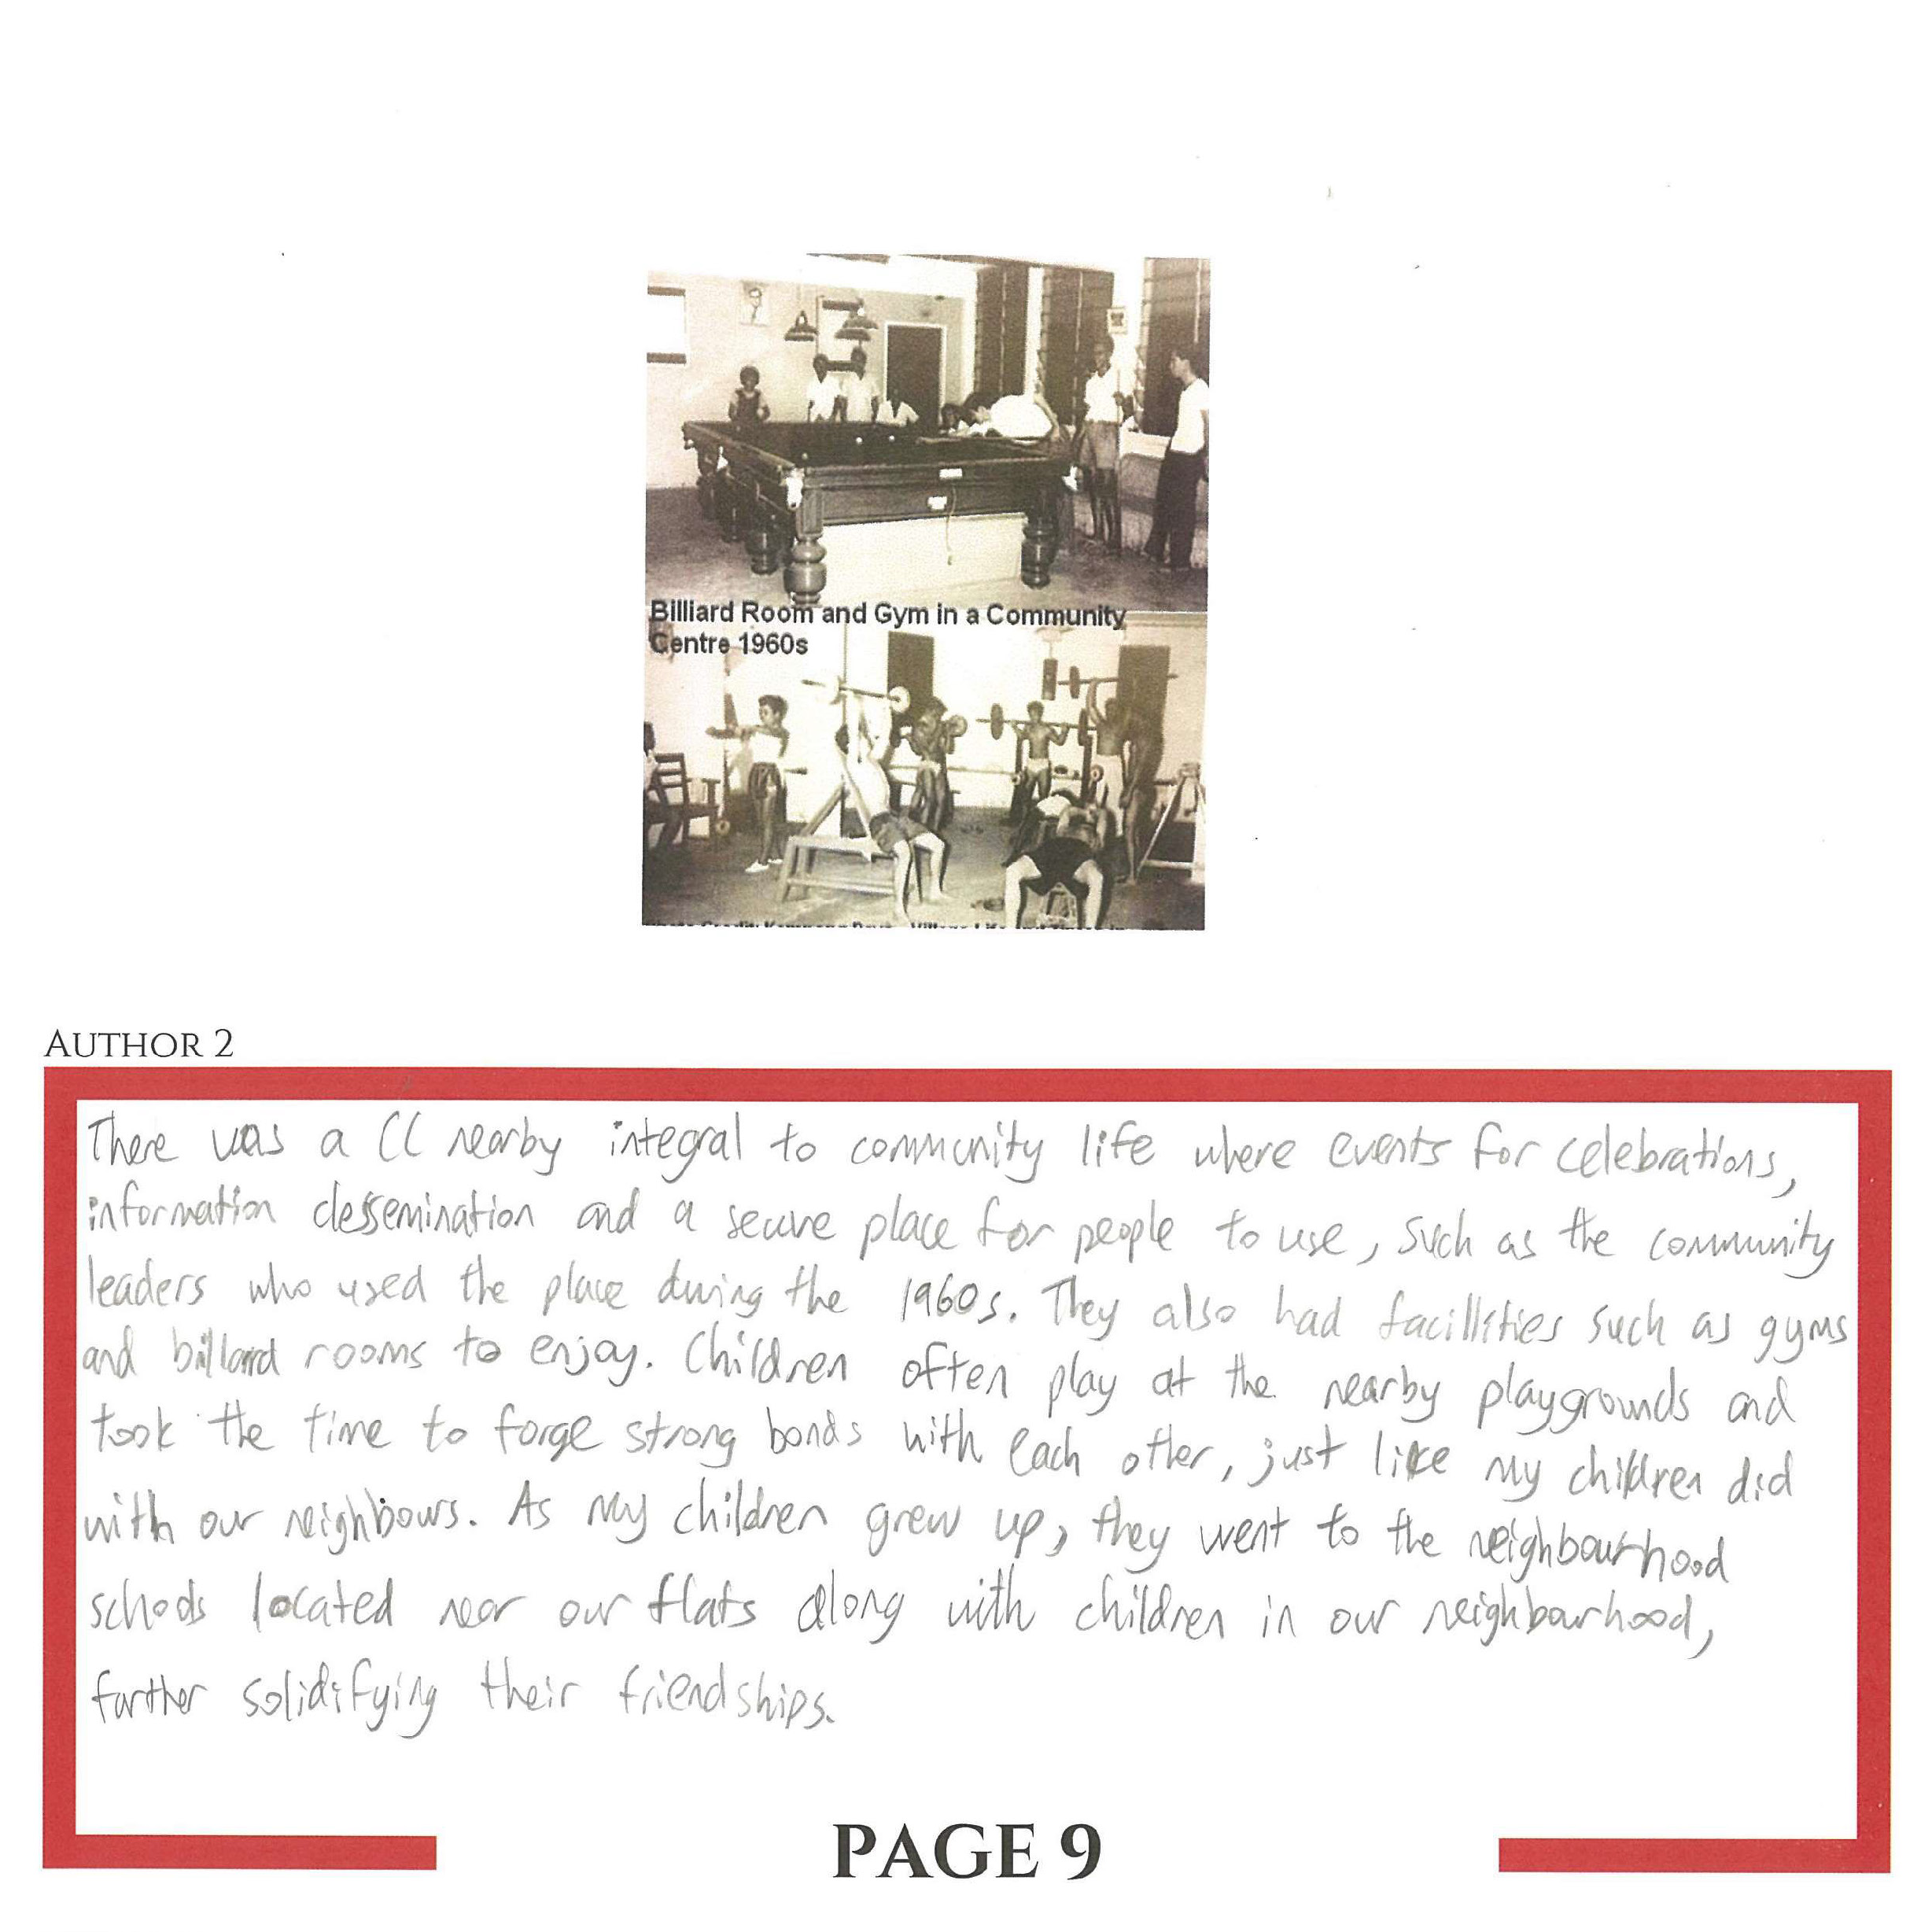 Billiard Room and Gym in a Community
Centre 1960s
AUTHOR 2
There was a CC nearby integral to community life where events for celebrations,
information dessemination and a secure place for people to use, such as the community
leaders who used the place during the 1960s. They also had facillities such as gyms
and billard rooms to enjoy. Children often play at the nearby playgrounds and
took the time to forge strong bonds with each other, just like my children did
with our neighbours. As my children grew up, they went to the neighbourhood
schools located near our flats along with children in our neighbourhood,
further solidifying their friendships.
PAGE 9